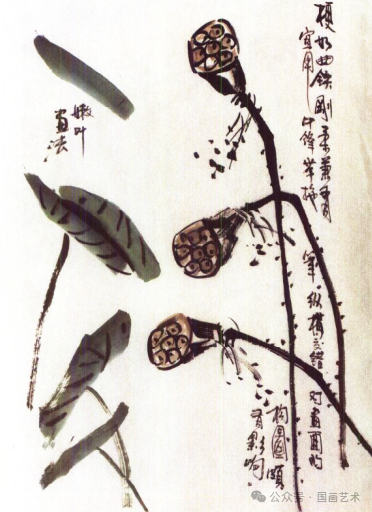 梗如曲铁剛柔兼有
宜用中锋
笔,纵横交错 对画面的
构图颇
有影响
嫩叶
画法
公众号 · 国画艺术